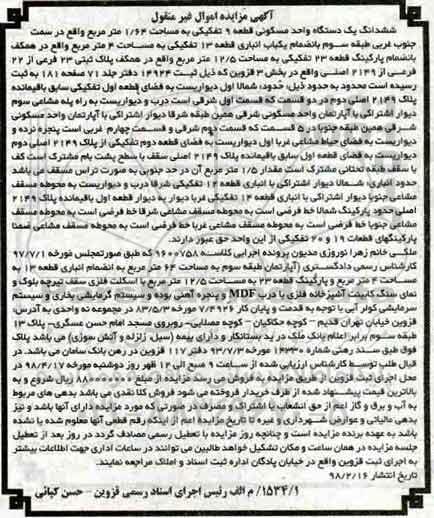 آگهی مزایده اموال غیر منقول
ششدانگ یک دستگاه واحد مسکونی قطعه ۹ تفکیکی به مساحت ۱/۶۴ متر مربع واقع در سمت
جنوب غربی طبقه سوم بانضمام یکباب انباری قطعه ۱۳ تفکیکی به مساحت ۴ متر مربع واقع در همکف
بانضمام پارکینگ قطعه ۲۳ تفکیکی به مساحت ۱۲/۵ متر مربع واقع در همکف پلاک ثبتی ۲۳ فرعی از ۲۲
فرعی از ۲۱۴۹ اصلی واقع در بخش ۳ قزوین که ذیل ثبت ۱۴۹۲۴ دفتر جلد ۷۱ صفحه ۱۸۱ به ثبت
رسیده است محدود به حدود ذیل: حدود: شمالا اول دیواریست به فضای قطعه اول تفکیکی سابق باقیمانده
پلاک ۲۱۴۹ اصلی دوم در دو قسمت که قسمت اول شرقی است درب و دیواریست به راه پله مشاعی سوم
دیوار اشتراکی با آپارتمان واحد مسکونی شرقی همین طبقه شرقا دیوار اشتراکی با آپارتمان واحد مسکونی
شرقی همین طبقه جنوبا در ۵ قسمت که قسمت دوم شرقی و قسمت چهارم غربی است پنجره نرده و
دیواریست به فضای حیاط مشاعی غربا اول دیواریست به فضای قطعه دوم تفکیکی از پلاک ۲۱۴۹ اصلی دوم
دیواریست به فضای قطعه اول سابق باقیمانده پلاک ۲۱۴۹ اصلی سقف با سطح پشت بام مشترک است کف
با سقف طبقه تحتانی مشترک است مقدار ۱/۵ متر مربع آن در حد جنوبی به صورت تراس مسقف می باشد
حدود انباری: شمالا دیوار اشتراکی با انباری قطعه ۱۲ تفکیکی شرقا درب و دیواریست به محوطه مسقف
مشاعی جنوبا دیوار اشتراکی با انباری قطعه ۱۴ تفکیکی غربا دیوار به دیوار قطعه اول باقیمانده پلاک ۲۱۴۹
اصلی حدود پارکینگ شمالا خط فرضی است به محوطه مسقف مشاعی شرقا خط فرضی است به محوطه مسقف
مشاعی جنوبا خط فرضی است به محوطه مسقف مشاعی غربا خط فرضی است به محوطه مسقف مشاعی ضمنا
پارکینگهای قطعات ۱۹ و ۲۰ تفکیکی از این واحد حق عبور دارند.
ملکی خانم زهرا نوروزی مدیون پرونده اجرایی کلاسه ۹۶۰۰۷۵۸ که طبق صورتمجلس مورخه ۹۷/۷/۱
کارشناس رسمی دادگستری (آپارتمان طبقه سوم به مساحت ۶۴ متر مربع به انضمام انباری قطعه ۱۳ به
مساحت ۴ مترمربع و پارکینگ قطعه ۲۳ به مساحت ۱۲/۵ متر مربع با اسکلت فلزی سقف تیرچه بلوک و
نمای سنگ کابینت آشپزخانه فلزی با درب MDF و پنجره آهنی بوده و سیستم گرمایشی بخاری و سیستم
سرمایشی کولر آبی با توجه به قدمت و پایان کار ۷/۴۹۲۶ مورخه ۸۳/۵/۳ در مجموعه نه واحدی به آدرس:
قزوین خیابان تهران قدیم – کوچه حکاکیان – کوچه مصلایی- روبروی مسجد امام حسن عسگری- پلاک ۱۳
طبقه سوم برابر اعلام بانک ملک در ید بستانکار و دارای بیمه (سیل، زلزله و آتش سوزی) می باشد پلاک
فوق طبق سند رهنی شماره ۱۴۳۳۰ مورخه ۹۳/۷/۳ دفتر ۱۱۷ قزوین در رهن بانک سامان می باشد. در
قبال طلب توسط کارشناس ارزیابی شده از ساعت ۹ صبح الی ۱۲ ظهر روز دوشنبه مورخه ۹۸/۴/۱۷ در
محل اجرای ثبت قزوین از طریق مزایده به فروش می رسد مزایده از مبلغ ریال شروع و به
بالاترین قیمت پیشنهاد شده از طرف خریدار فروخته می شود فروش کلا نقدی می باشد بدهی های مربوط
به آب و برق و گاز اعم از حق انشعاب یا اشتراک و مصرف در صورتی که مورد مزایده دارای آنها باشد و نیز
بدهی مالیاتی و عوارض شهرداری و غیره تا تاریخ مزایده اعم از اینکه رقم قطعی آنها معلوم شده یا نشده
باشد به عهده برنده مزایده است و چنانچه روز مزایده با تعطیل رسمی مصادف گردد در روز بعد از تعطیل
جلسه مزایده در همان ساعت و مکان تشکیل خواهد طالبین می توانند در ساعات اداری جهت اطلاعات بیشتر
به اجرای ثبت قزوین واقع در خیابان پادگان اداره ثبت اسناد و املاک مراجعه نمایند.
تاریخ انتشار ۹۸/۲/۱۶
۱۵۳۴/۱/ م الف رئیس اجرای اسناد رسمی قزوین - حسن کیائی